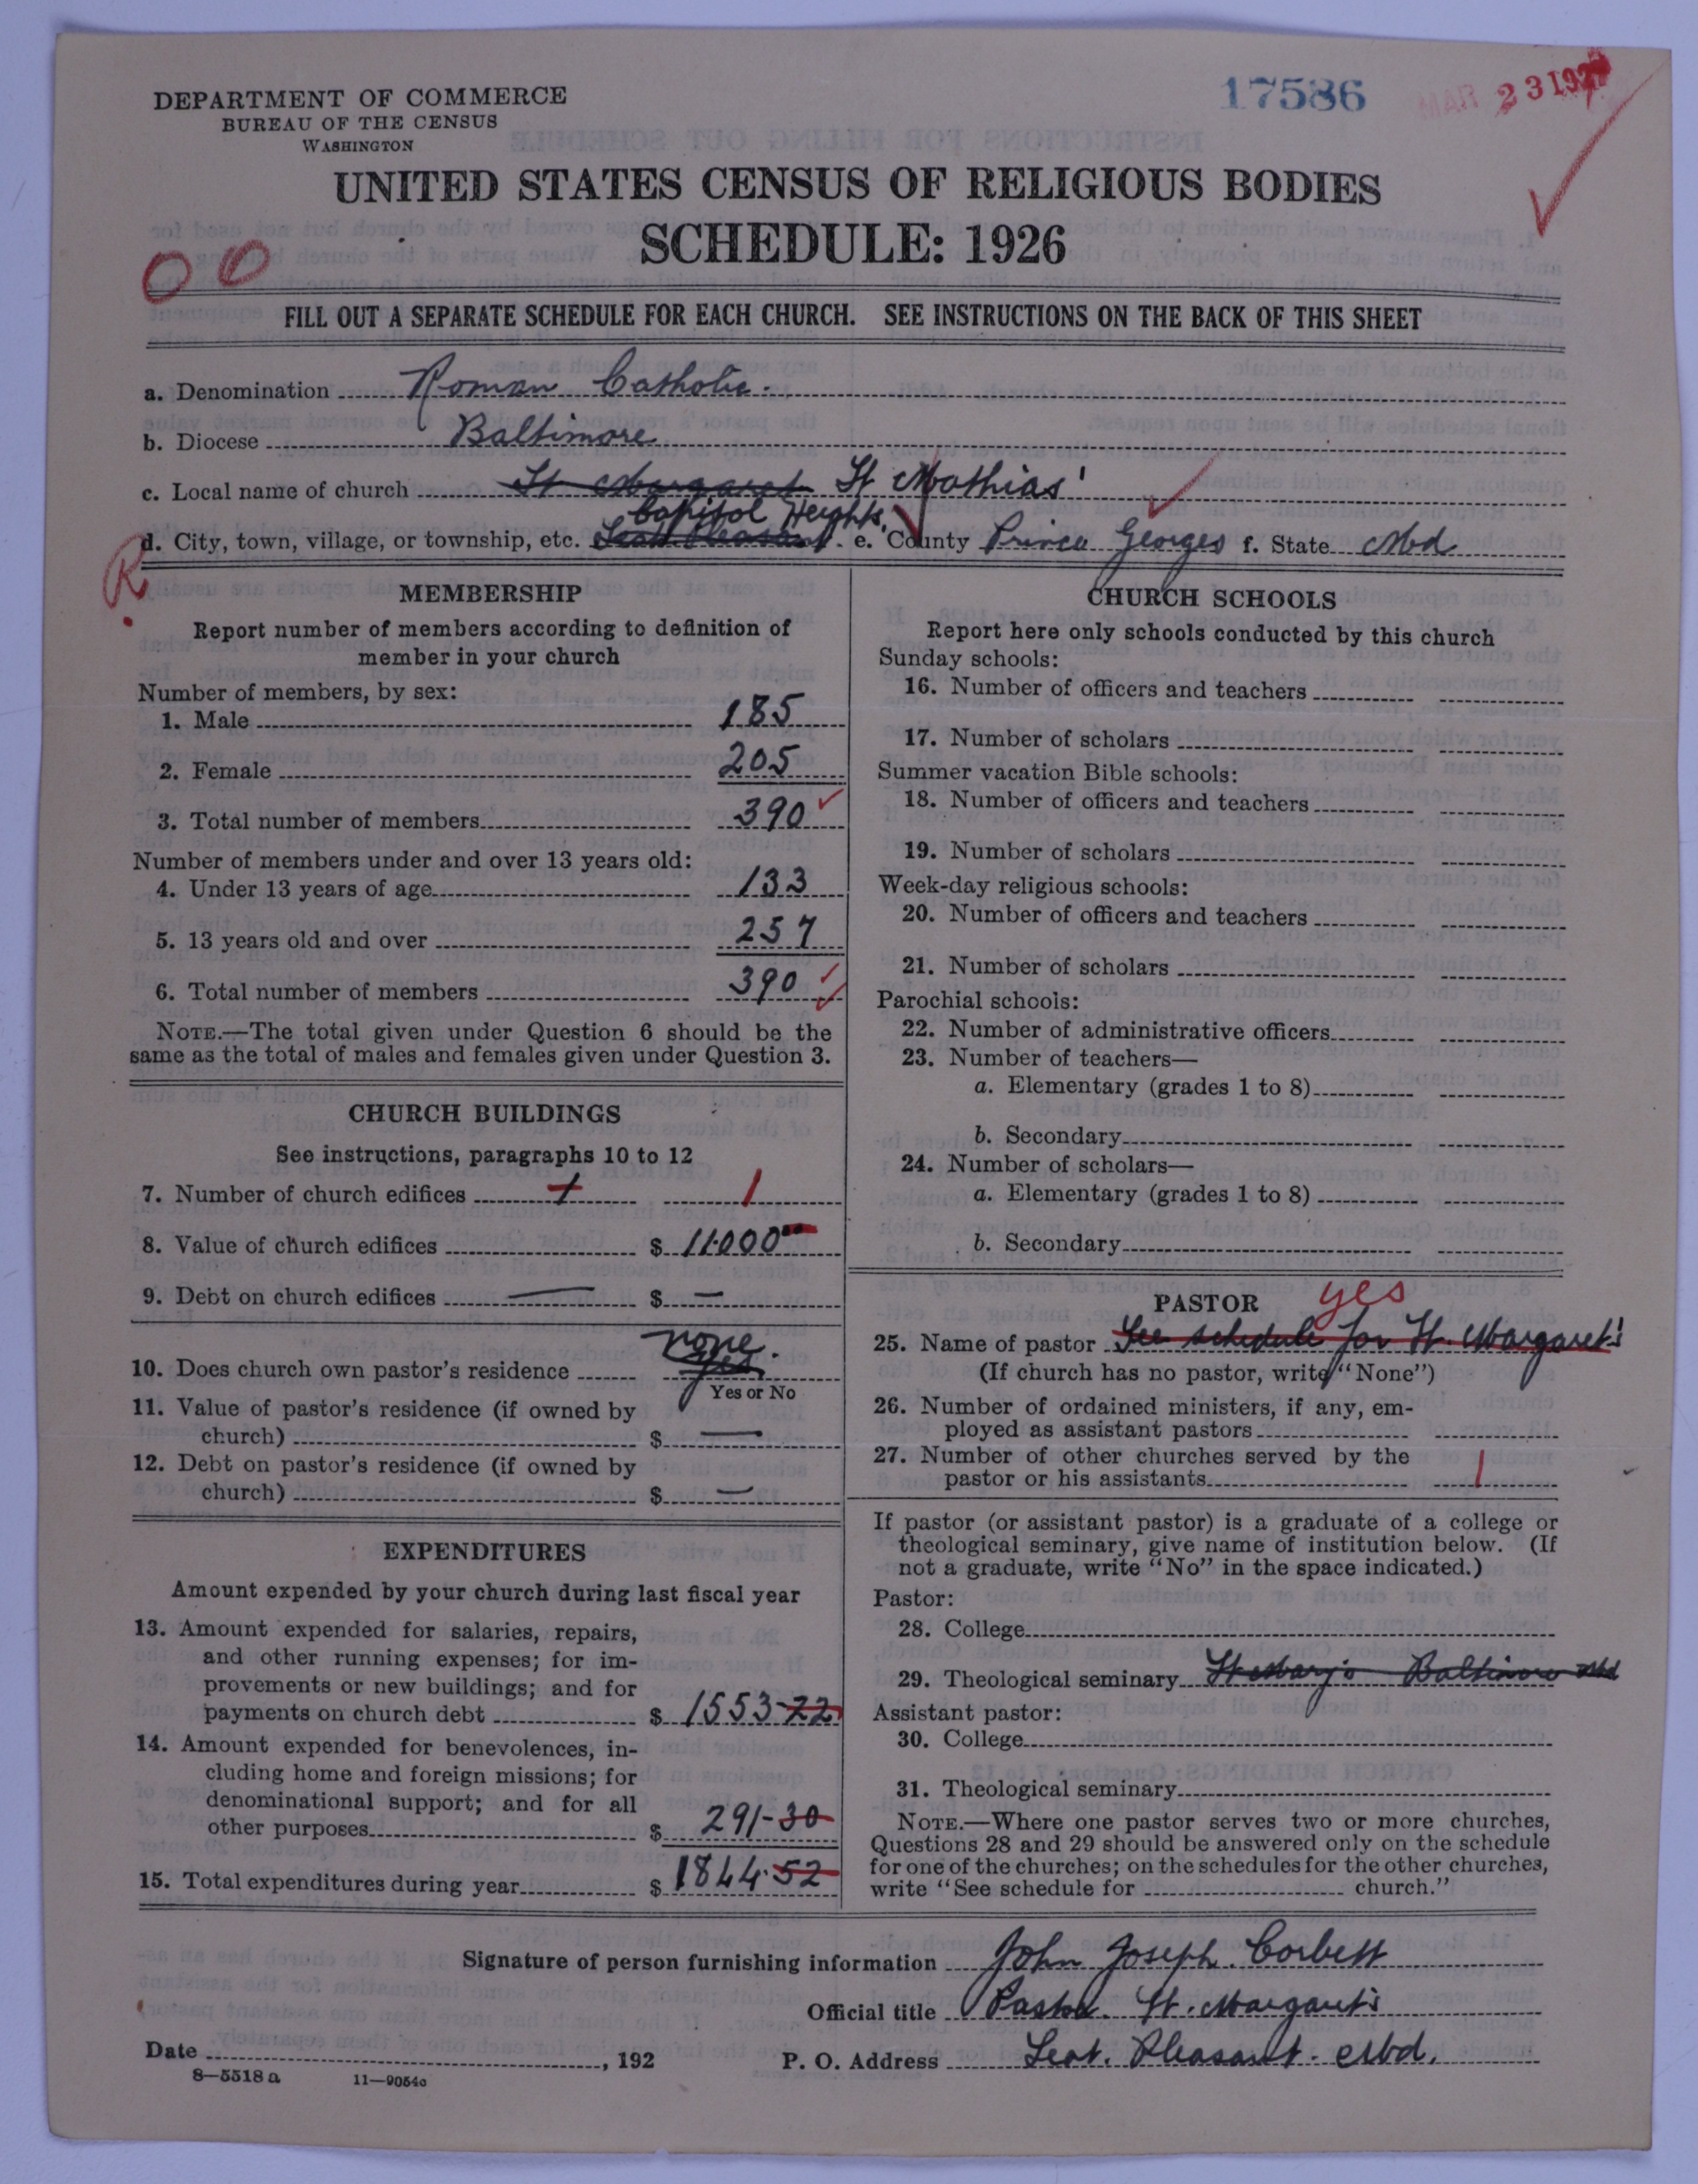 DEPARTMENT OF COMMERCE
BUREAU OF THE CENSUS
WASHINGTON
17586
MAR 23 1927
UNITED STATES CENSUS OF RELIGIOUS BODIES
SCHEDULE: 1926
00
FILL OUT A SEPARATE SCHEDULE FOR EACH CHURCH. SEE INSTRUCTIONS ON THE BACK OF THIS SHEET
a. Denomination Roman Catholic.
b. Diocese Baltimore
c. Local name of church St Margaret St Mathias'
Capitol Heights.
d. City, town, village, or township, etc. Seat Pleasant. e. County Prince Georges f. State Md
R.
MEMBERSHIP
Report number of members according to definition of
member in your church
Number of members, by sex:
1. Male 185
2. Female 205
3. Total number of members 390
Number of members under and over 13 years old:
4. Under 13 years of age 133
5. 13 years old and over 257
6. Total number of members 390
NOTE.—The total given under Question 6 should be the
same as the total of males and females given under Question 3.
CHURCH BUILDINGS
See instructions, paragraphs 10 to 12
7. Number of church edifices 1 1
8. Value of church edifices $ 11000 00
9. Debt on church edifices — $ —
none.
10. Does church own pastor's residence Yes
Yes or No
11. Value of pastor's residence (if owned by
church) $ —
12. Debt on pastor's residence (if owned by
church) $ —
EXPENDITURES
Amount expended by your church during last fiscal year
13. Amount expended for salaries, repairs,
and other running expenses; for im-
provements or new buildings; and for
payments on church debt $ 1553-22
14. Amount expended for benevolences, in-
cluding home and foreign missions; for
denominational support; and for all
other purposes $ 291-30
15. Total expenditures during year $ 1844.52
CHURCH SCHOOLS
Report here only schools conducted by this church
Sunday schools:
16. Number of officers and teachers
17. Number of scholars
Summer vacation Bible schools:
18. Number of officers and teachers
19. Number of scholars
Week-day religious schools:
20. Number of officers and teachers
21. Number of scholars
Parochial schools:
22. Number of administrative officers
23. Number of teachers—
a. Elementary (grades 1 to 8)
b. Secondary
24. Number of scholars—
a. Elementary (grades 1 to 8)
b. Secondary
PASTOR yes
25. Name of pastor See schedule for St. Margaret's
(If church has no pastor, write "None")
26. Number of ordained ministers, if any, em-
ployed as assistant pastors
27. Number of other churches served by the
pastor or his assistants 1
If pastor (or assistant pastor) is a graduate of a college or
theological seminary, give name of institution below. (If
not a graduate, write "No" in the space indicated.)
Pastor:
28. College
29. Theological seminary St Mary's Baltimore Md
Assistant pastor:
30. College
31. Theological seminary
NOTE.—Where one pastor serves two or more churches,
Questions 28 and 29 should be answered only on the schedule
for one of the churches; on the schedules for the other churches,
write "See schedule for church."
Signature of person furnishing information John Joseph. Corbett
Official title Pastor. St. Margaret's
Date , 192
P. O. Address Seat. Pleasant. Md.
8—5518 a 11—9054c